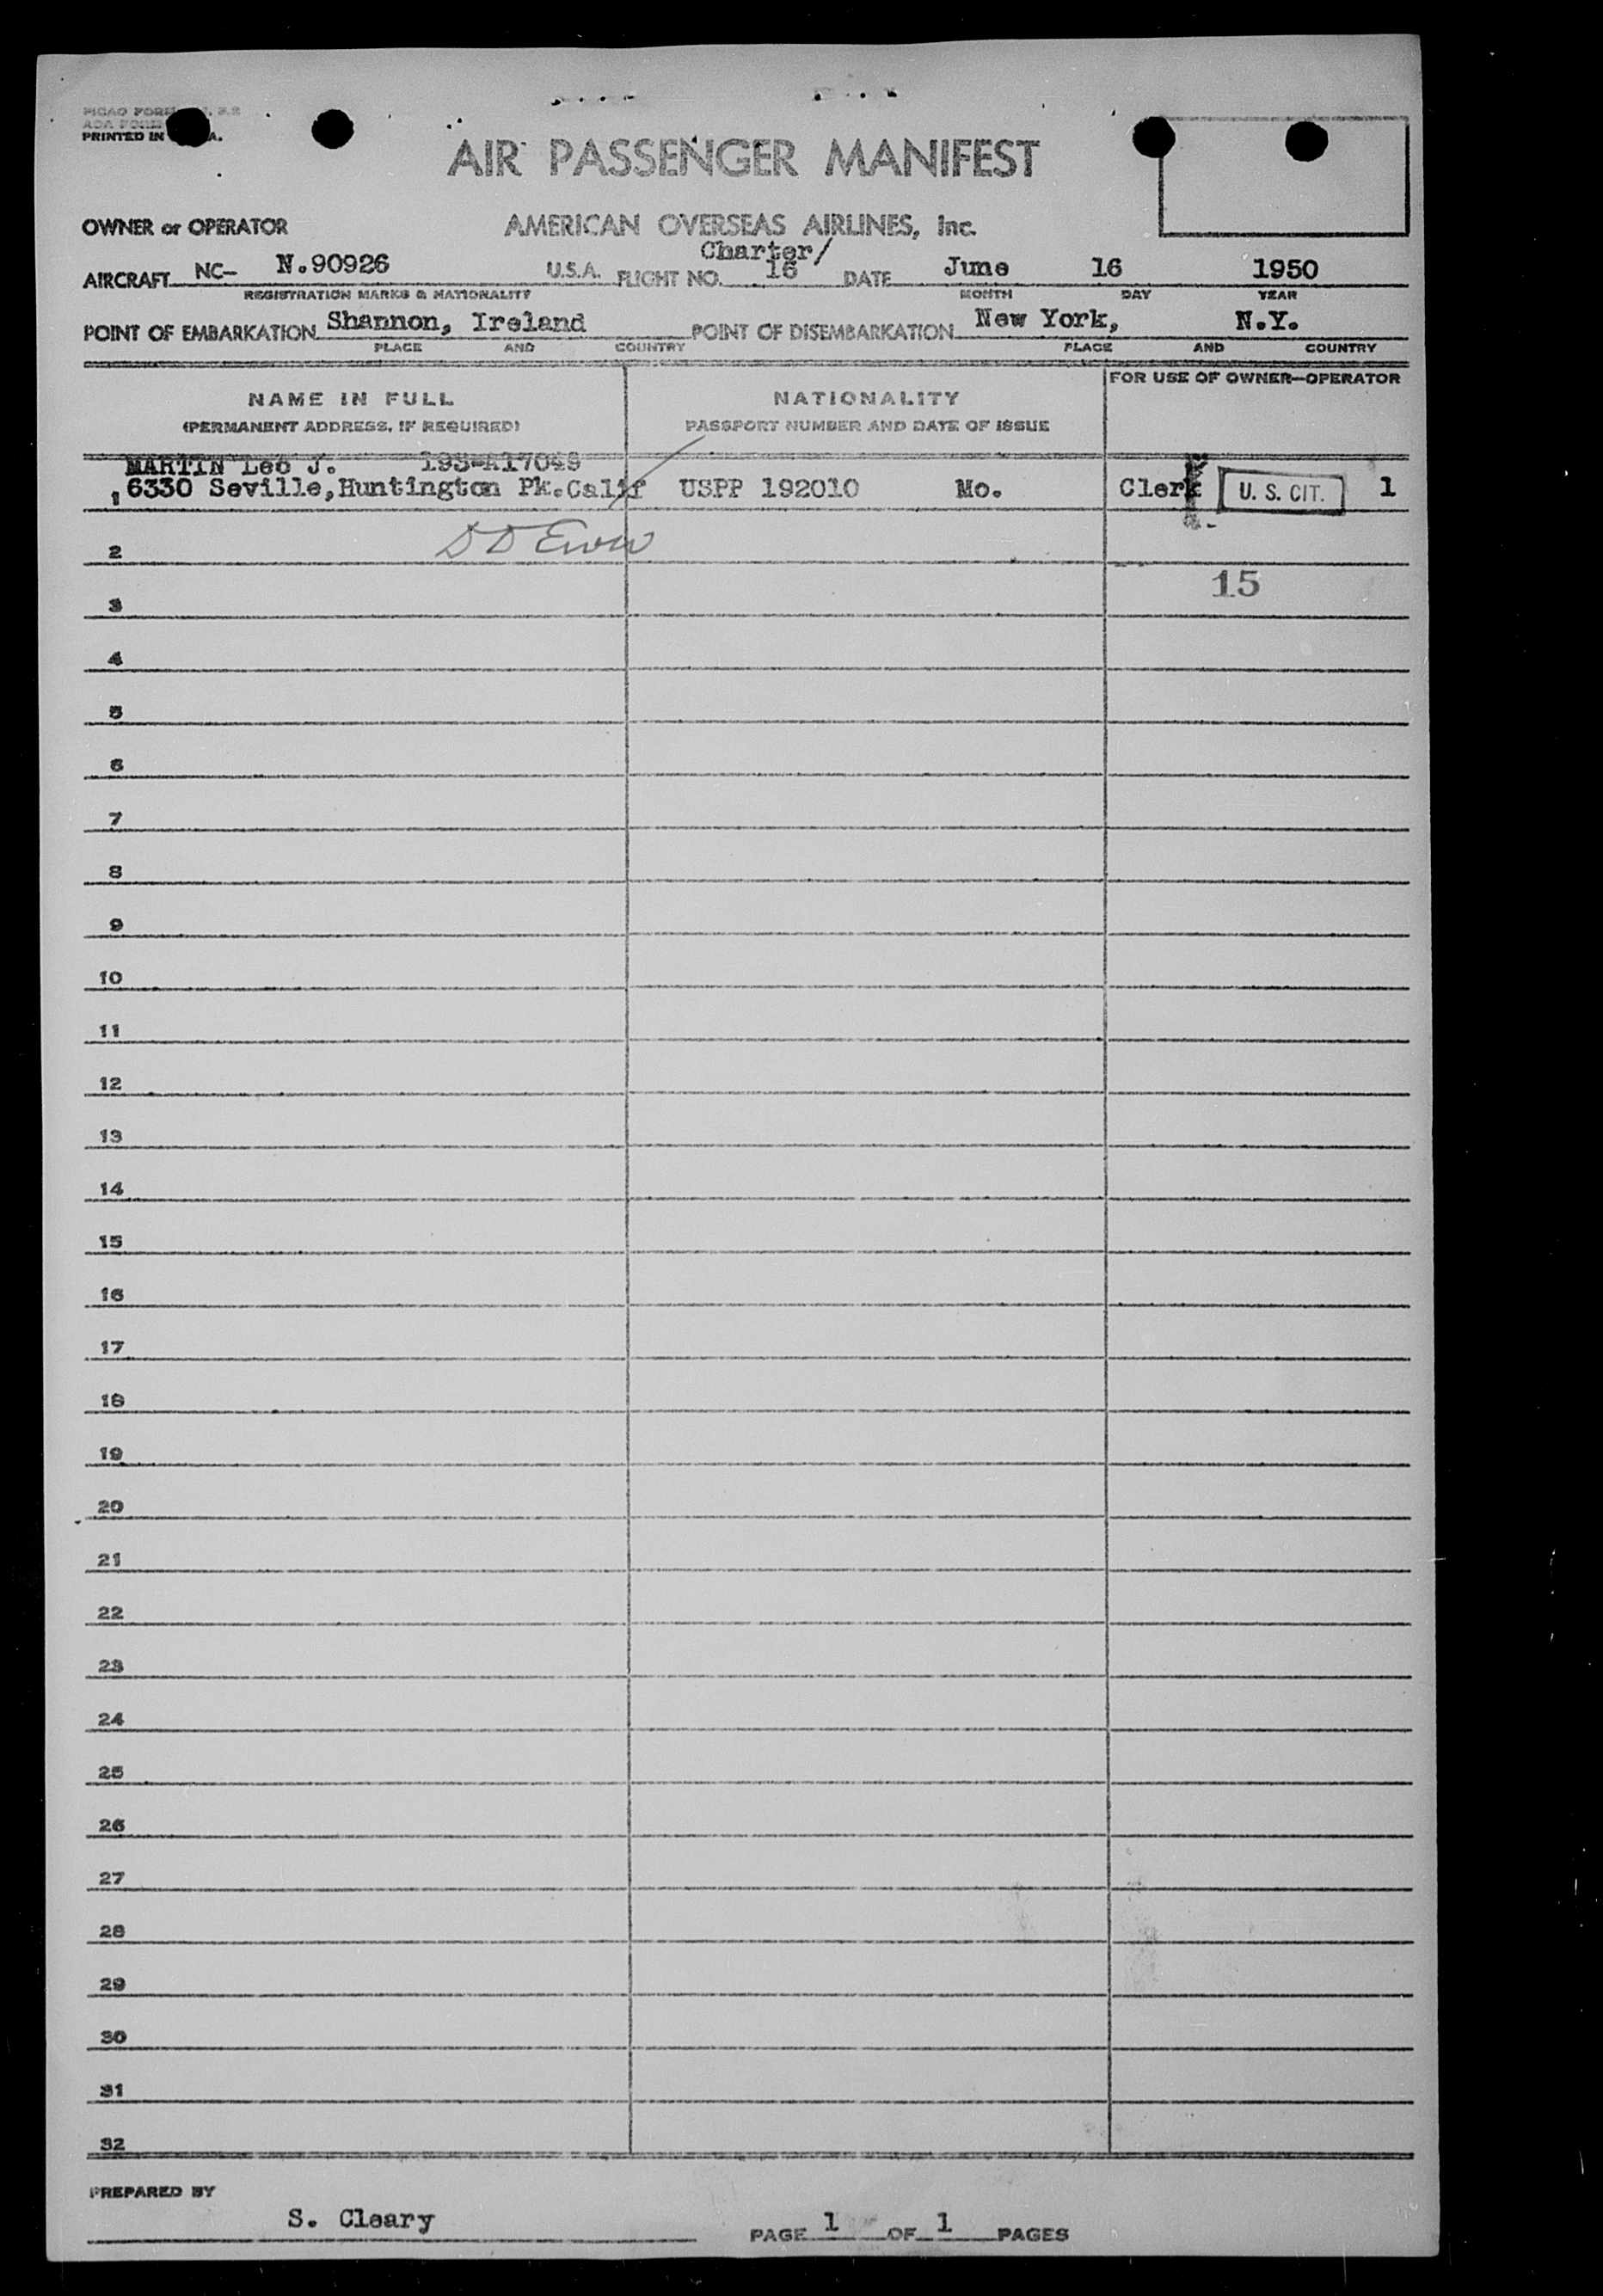 PRINTED IN A.
AIR PASSENGER MANIFEST
OWNER or OPERATOR AMERICAN OVERSEAS AIRLINES, Inc.
Charter/
AIRCRAFT NC- N.90926 U.S.A. FLIGHT NO. 16 DATE June 16 1950
REGISTRATION MARKS & NATIONALITY MONTH DAY YEAR
POINT OF EMBARKATION Shannon, Ireland POINT OF DISEMBARKATION New York, N.Y.
PLACE AND COUNTRY PLACE AND COUNTRY
FOR USE OF OWNER-OPERATOR
NAME IN FULL NATIONALITY
(PERMANENT ADDRESS, IF REQUIRED) PASSPORT NUMBER AND DATE OF ISSUE
MARTIN Leo J.
1 6330 Seville, Huntington Pk. Calif USPP 192010 Mo. Clerk U. S. CIT. 1
2
15
3
4
5
6
7
8
9
10
11
12
13
14
15
16
17
18
19
20
21
22
23
24
25
26
27
28
29
30
31
32
PREPARED BY
S. Cleary
PAGE 1 OF 1 PAGES